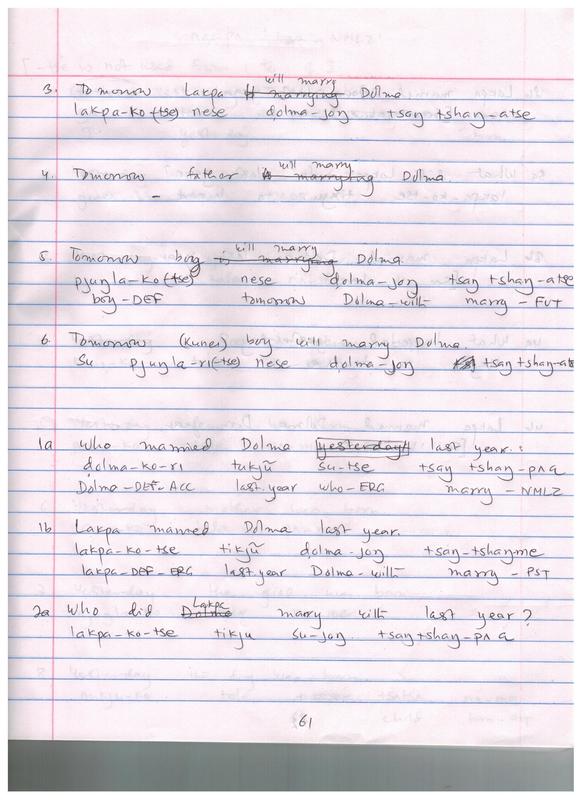 will marry
3. Tomorrow Lakpa marrying Dolma
lakpa-ko(-tse) nese dolma-joŋ tsaŋ tshaŋ-atse
will marry
4. Tomorrow father marrying Dolma.
–
will marry
5. Tomorrow boy is marrying Dolma.
pjuŋla-ko(-tse) nese dolma-joŋ tsaŋ tshaŋ-atse
boy-DEF tomorrow Dolma-with marry-FUT
6. Tomorrow (kunei) boy will marry Dolma.
Su pjuŋla-ri(-tse) nese dolma-joŋ tsaŋ tshaŋ-atse
1a Who married Dolma yesterday last year?
dolma-ko-ri tukjũ su-tse tsaŋ tshaŋ-pʌ a
Dolma-DEF-ACC last.year who-ERG marry-NMLZ
1b Lakpa married Dolma last year.
lakpa-ko-tse tikjũ dolma-joŋ tsaŋ-tshaŋ-me
lakpa-DEF-ERG last year Dolma-with marry-PST
Lakpa
2a Who did Dolma marry with last year?
lakpa-ko-tse tikju su-joŋ tsaŋ tshaŋ-pʌ a
61